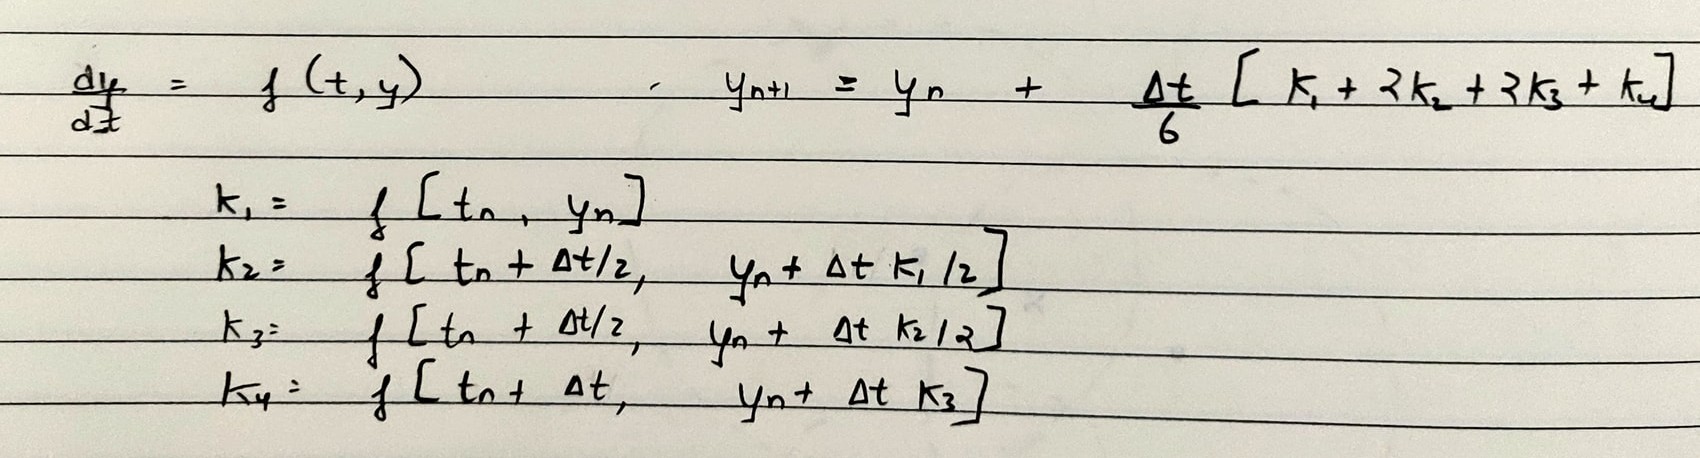 dy/dt = f (t, y) . y_{n+1} = y_n + Δt/6 [ K_1 + 2K_2 + 2K_3 + K_4 ]
K_1 = f [ t_n , y_n ]
K_2 = f [ t_n + Δt/2, y_n + Δt K_1 /2 ]
K_3 = f [ t_n + Δt/2, y_n + Δt K_2 /2 ]
K_4 = f [ t_n + Δt, y_n + Δt K_3 ]